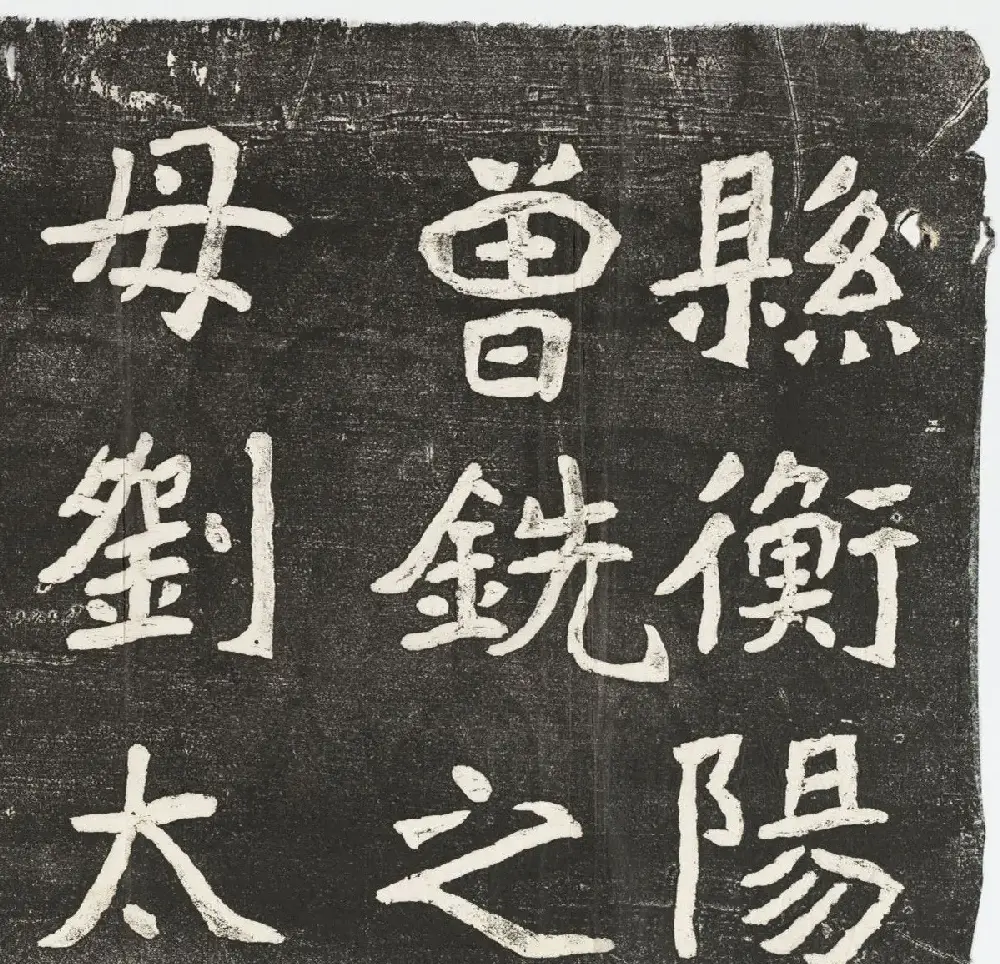 縣衡陽
曾銑之
母劉太